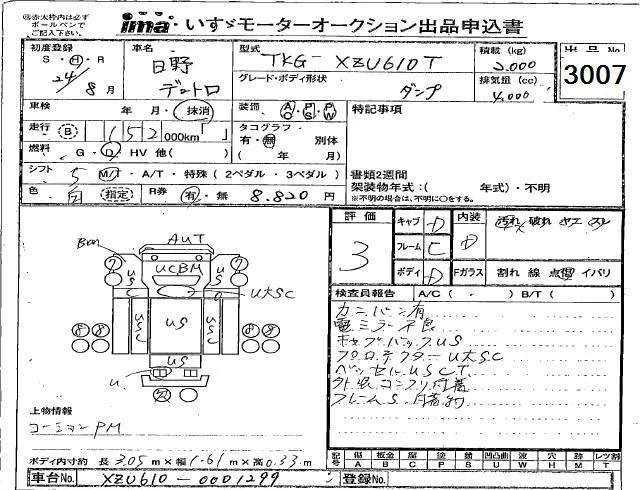 ㊟赤太枠内は必ず
ボールペンで
ご記入下さい。
ima いすゞモーターオークション出品申込書
初度登録 S・H・R 24/8月
車名 日野 デュトロ
型式 TKG- XZU610T
グレード・ボディ形状 ダンプ
積載(kg) 2.000
排気量(cc) 4.000
出品No. 3007
車検 年 月・抹消
装備 AC PS PW
特記事項
走行 B 152 000km「 」
タコグラフ 有・無 別体 ( 年 月)
燃料 G・D・HV 他( )
シフト 5 M/T・A/T・特殊(2ペダル・3ペダル)
書類2週間
架装物年式:( 年式)・不明
※不明の場合は、不明に○をする。
色 白 指定 R券 有・無 8.820円
評価 3
キャブ D
フレーム C
ボディ D
内装 D
汚れ 破れ ヤエ スレ
Fガラス 割れ 線 点 イバリ
検査員報告 A/C( . ) B/T( )
カンバン有
電ミラー不良
キャブバックUS
プロテクターU大SC
ベッセルUSCT
外装コンプリ付着
フレームS.付着物
AUT
Bm
UCBM
US
U大SC
C
USC
US
USC
US
U
上物情報
コーションPM
ボディ内寸約 長 3.05 m×幅 1.61 m×高 0.33 m
記号 似 A 板金 B 腐 C 塗 P 錆 S 凹凸曲 U 波 W 穴 H 跡 M レツ割 T
車台No. XZU610-0001299
登録No.